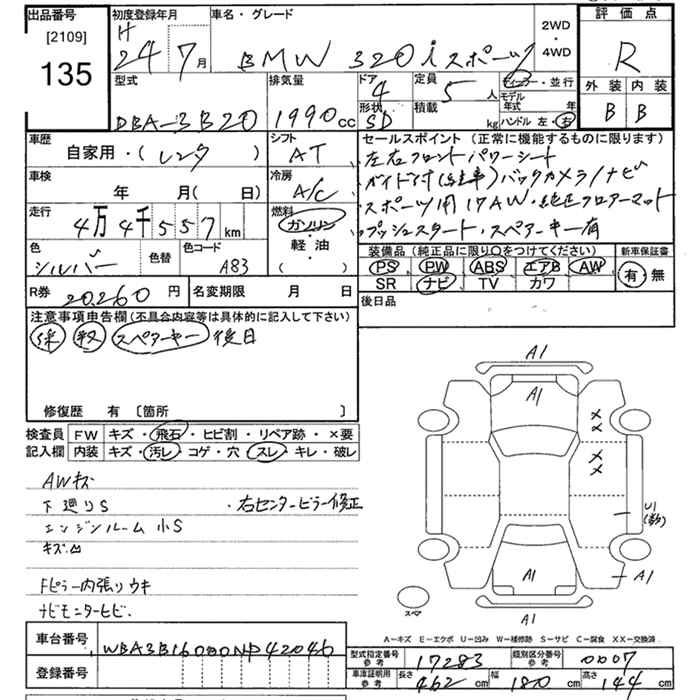 出品番号
[2109]
135
初度登録年月
H
24年7月
車名・グレード
BMW 320i スポーツ
2WD
・
4WD
評価点
R
外装 内装
B B
型式
DBA-3B20
排気量
1990cc
ドア
4
形状
SD
定員
5人
積載
kg
ディーラー・並行
モデル
年式 年
ハンドル 左・右
車歴
自家用・(レンタ)
シフト
AT
車検
年 月(日)
冷房
A/C
走行
4万4千557km
燃料
ガソリン
・
軽・油
( )
色
シルバー
色替
色コード
A83
R券 20,260円
名変期限 月 日
セールスポイント (正常に機能するものに限ります)
・左右フロントパワーシート
・ガイド付(駐車)バックカメラ/ナビ
・スポーツ用17AW・純正フロアーマット
・プッシュスタート・スペアキー有
装備品 (純正品に限り○をつけてください)
PS PW ABS エアB AW
SR ナビ TV カワ
新車保証書
有 無
後日品
注意事項申告欄(不具合内容等は具体的に記入して下さい)
保 取 スペアキー 後日
修復歴 有 〔箇所 〕
検査員
記入欄
FW キズ・飛石・ヒビ割・リペア跡・×要
内装 キズ・汚レ・コゲ・穴・スレ・キレ・破レ
AWキズ
下廻りS
・右センターピラー修正
エンジンルーム小S
キズ凹
Fピラー内張りウキ
ナビモニターヒビ.
A1
A1
×
×
×
×
U1
A1
A1
A1
スペア
A-キズ E-エクボ U-凹み W-補修跡 S-サビ C-腐食 XX-交換済
車台番号
WBA3B16080NP42046
登録番号
型式指定番号
参考
17283
類別区分番号
参考
0007
車庫証明用
参考
長さ 462cm 幅 180cm 高さ 144cm